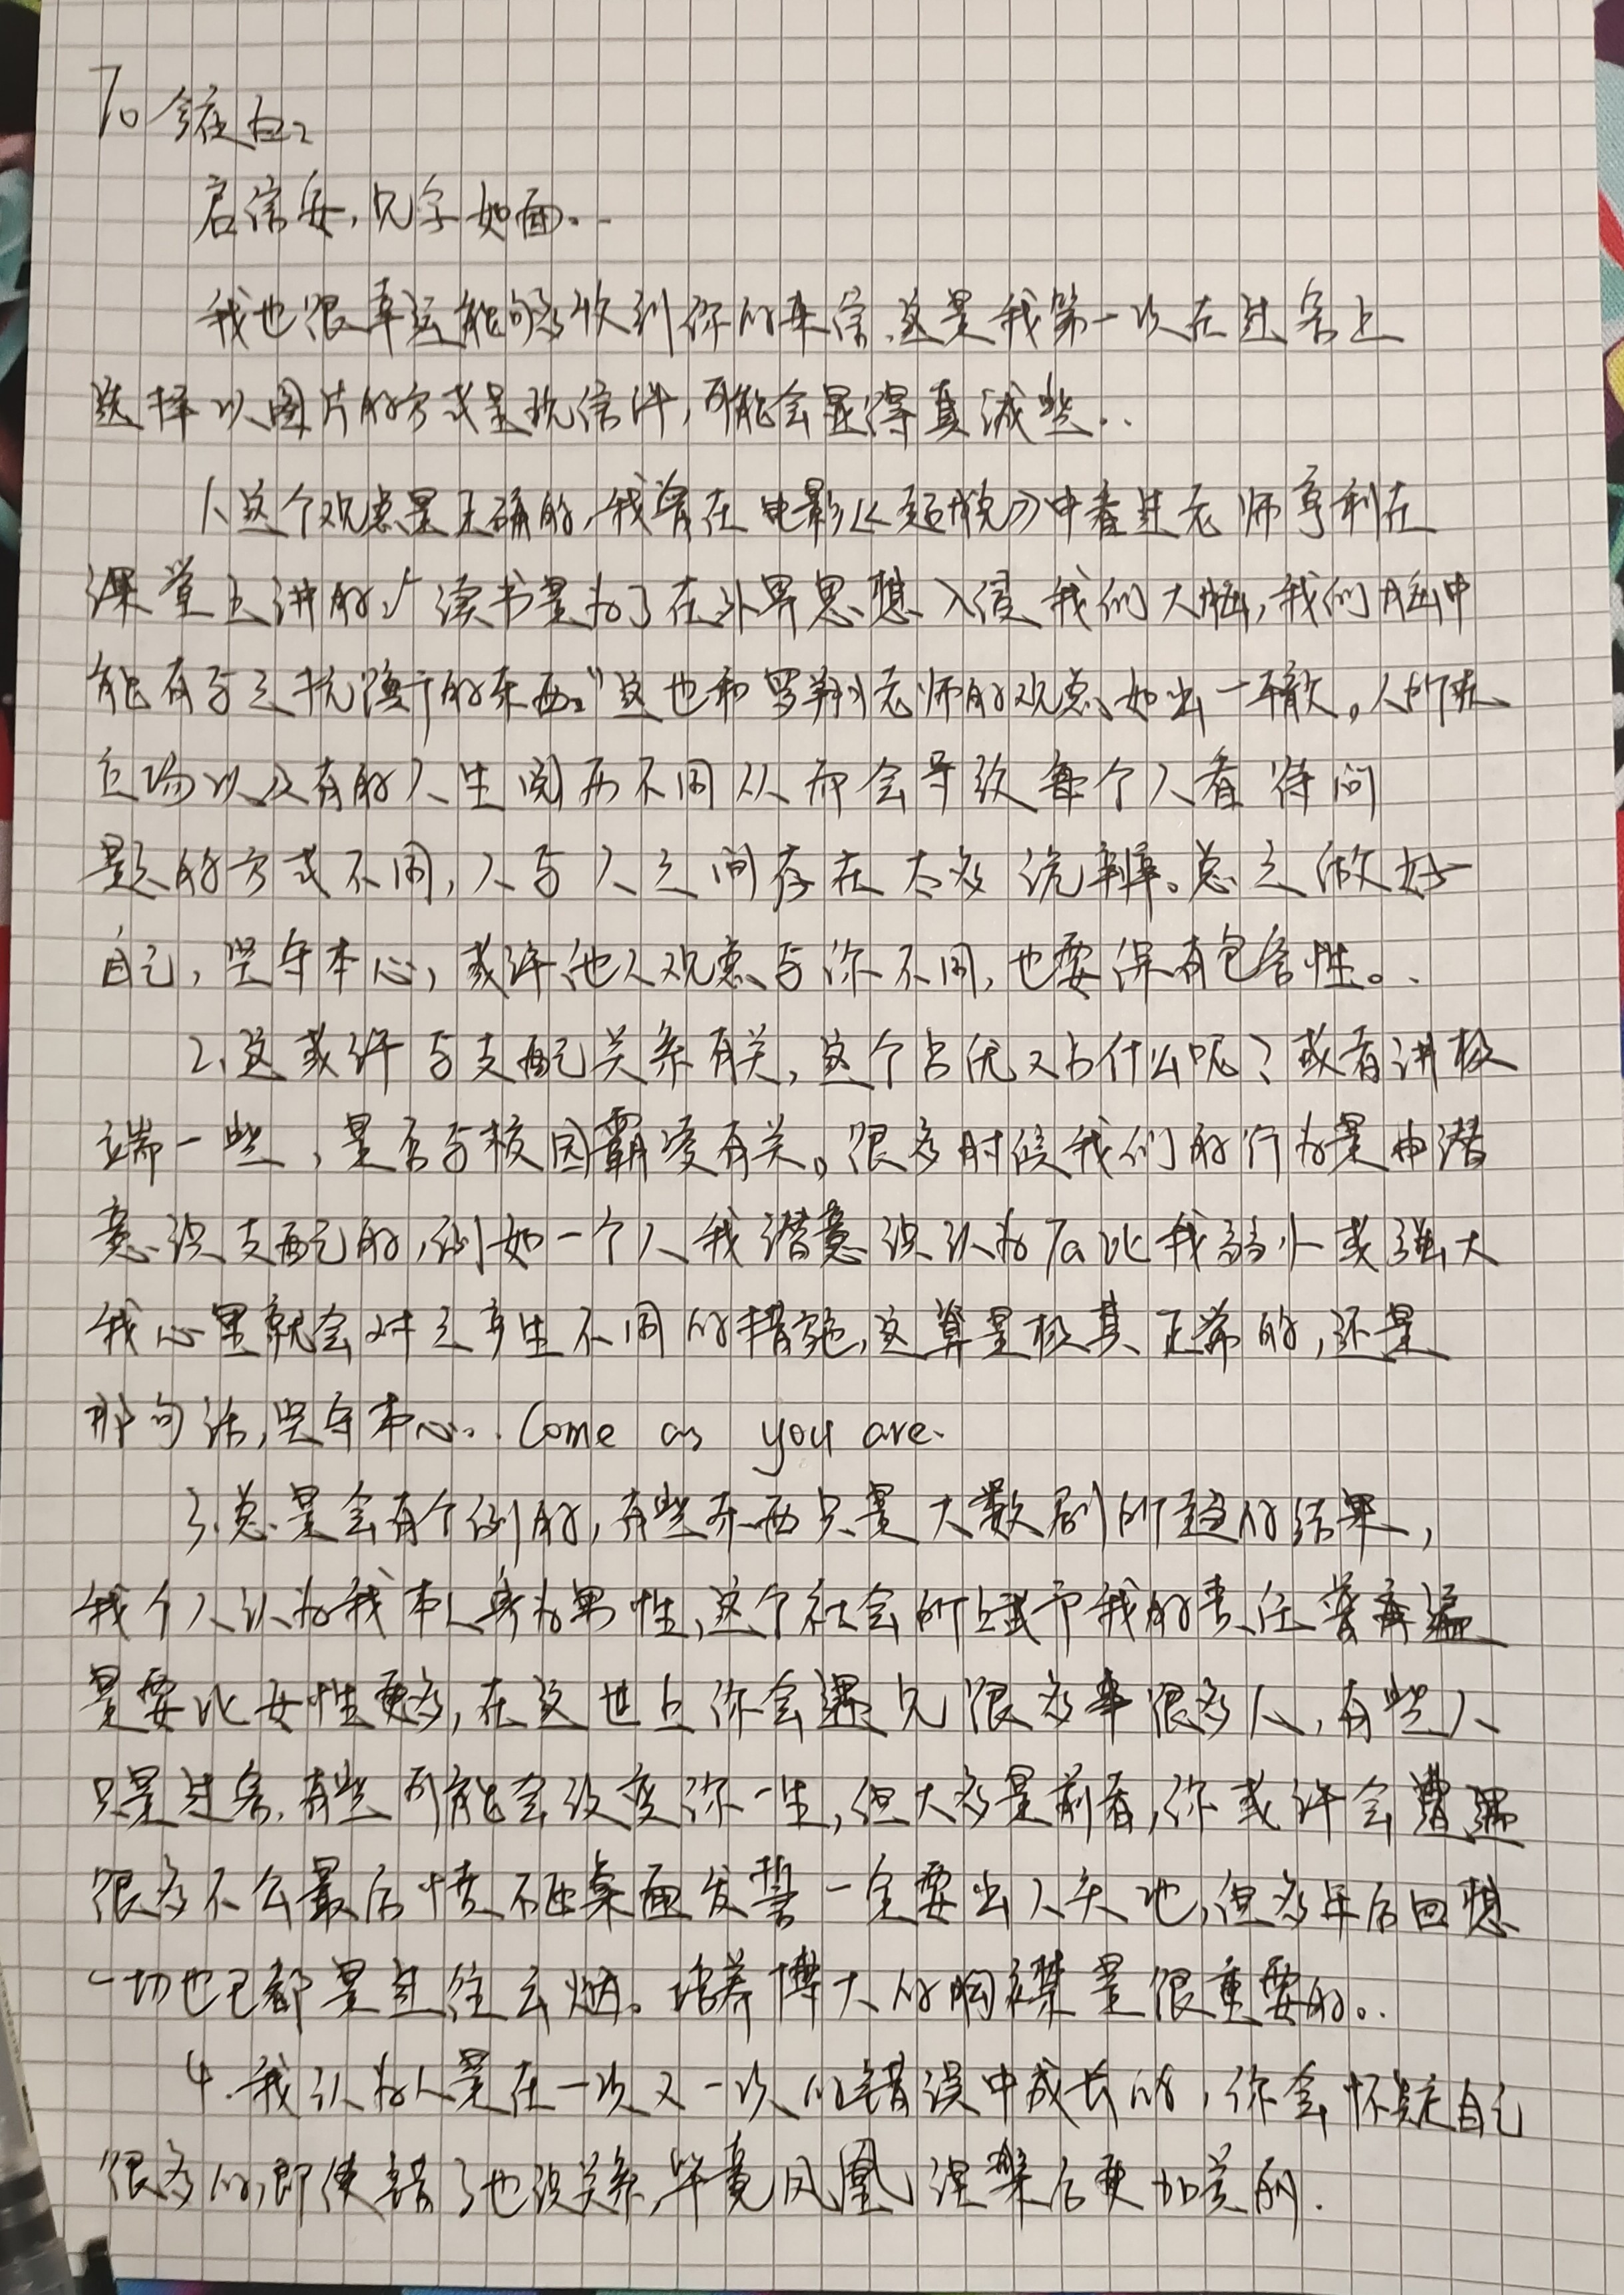 To
启信安,见字如面..
我也很幸运能够收到你的来信,这是我第一次在过客上
选择以图片的方式呈现信件,可能会显得真诚些..
1、这个观点是正确的,我曾在电影《超脱》中看过老师亨利在
课堂上讲的:“读书是为了在外界思想入侵我们大脑,我们脑中
能有与之抗衡的东西。”这也和罗翔老师的观点如出一辙。人所处
立场以及有的人生阅历不同从而会导致每个人看待问
题的方式不同,人与人之间存在太多诡辩。总之做好
自己,坚守本心,或许他人观点与你不同,也要保有包容性。.
2、这或许与支配关系有关,这个占优又占什么呢?或者讲极
端一些,是否与校园霸凌有关。很多时候我们的行为是由潜
意识支配的,例如一个人我潜意识认为Ta比我弱小或强大
我心里就会对之产生不同的措施,这算是极其正常的,还是
那句话,坚守本心.. Come as you are.
3、总是会有个例的,有些东西只是大数据所趋的结果,
我个人认为我本人身为男性,这个社会所赋予我的责任普遍
是要比女性更多,在这世上你会遇见很多事很多人,有些人
只是过客,有些可能会改变你一生,但大多是前者,你或许会遭遇
很多不公最后愤而砸桌面发誓一定要出人头地,但多年后回想
一切也已都是过往云烟。培养博大的胸襟是很重要的。.
4.我认为人是在一次又一次的错误中成长的,你会怀疑自己
很多的,即使错了也没关系,毕竟凤凰涅槃后更加美丽.